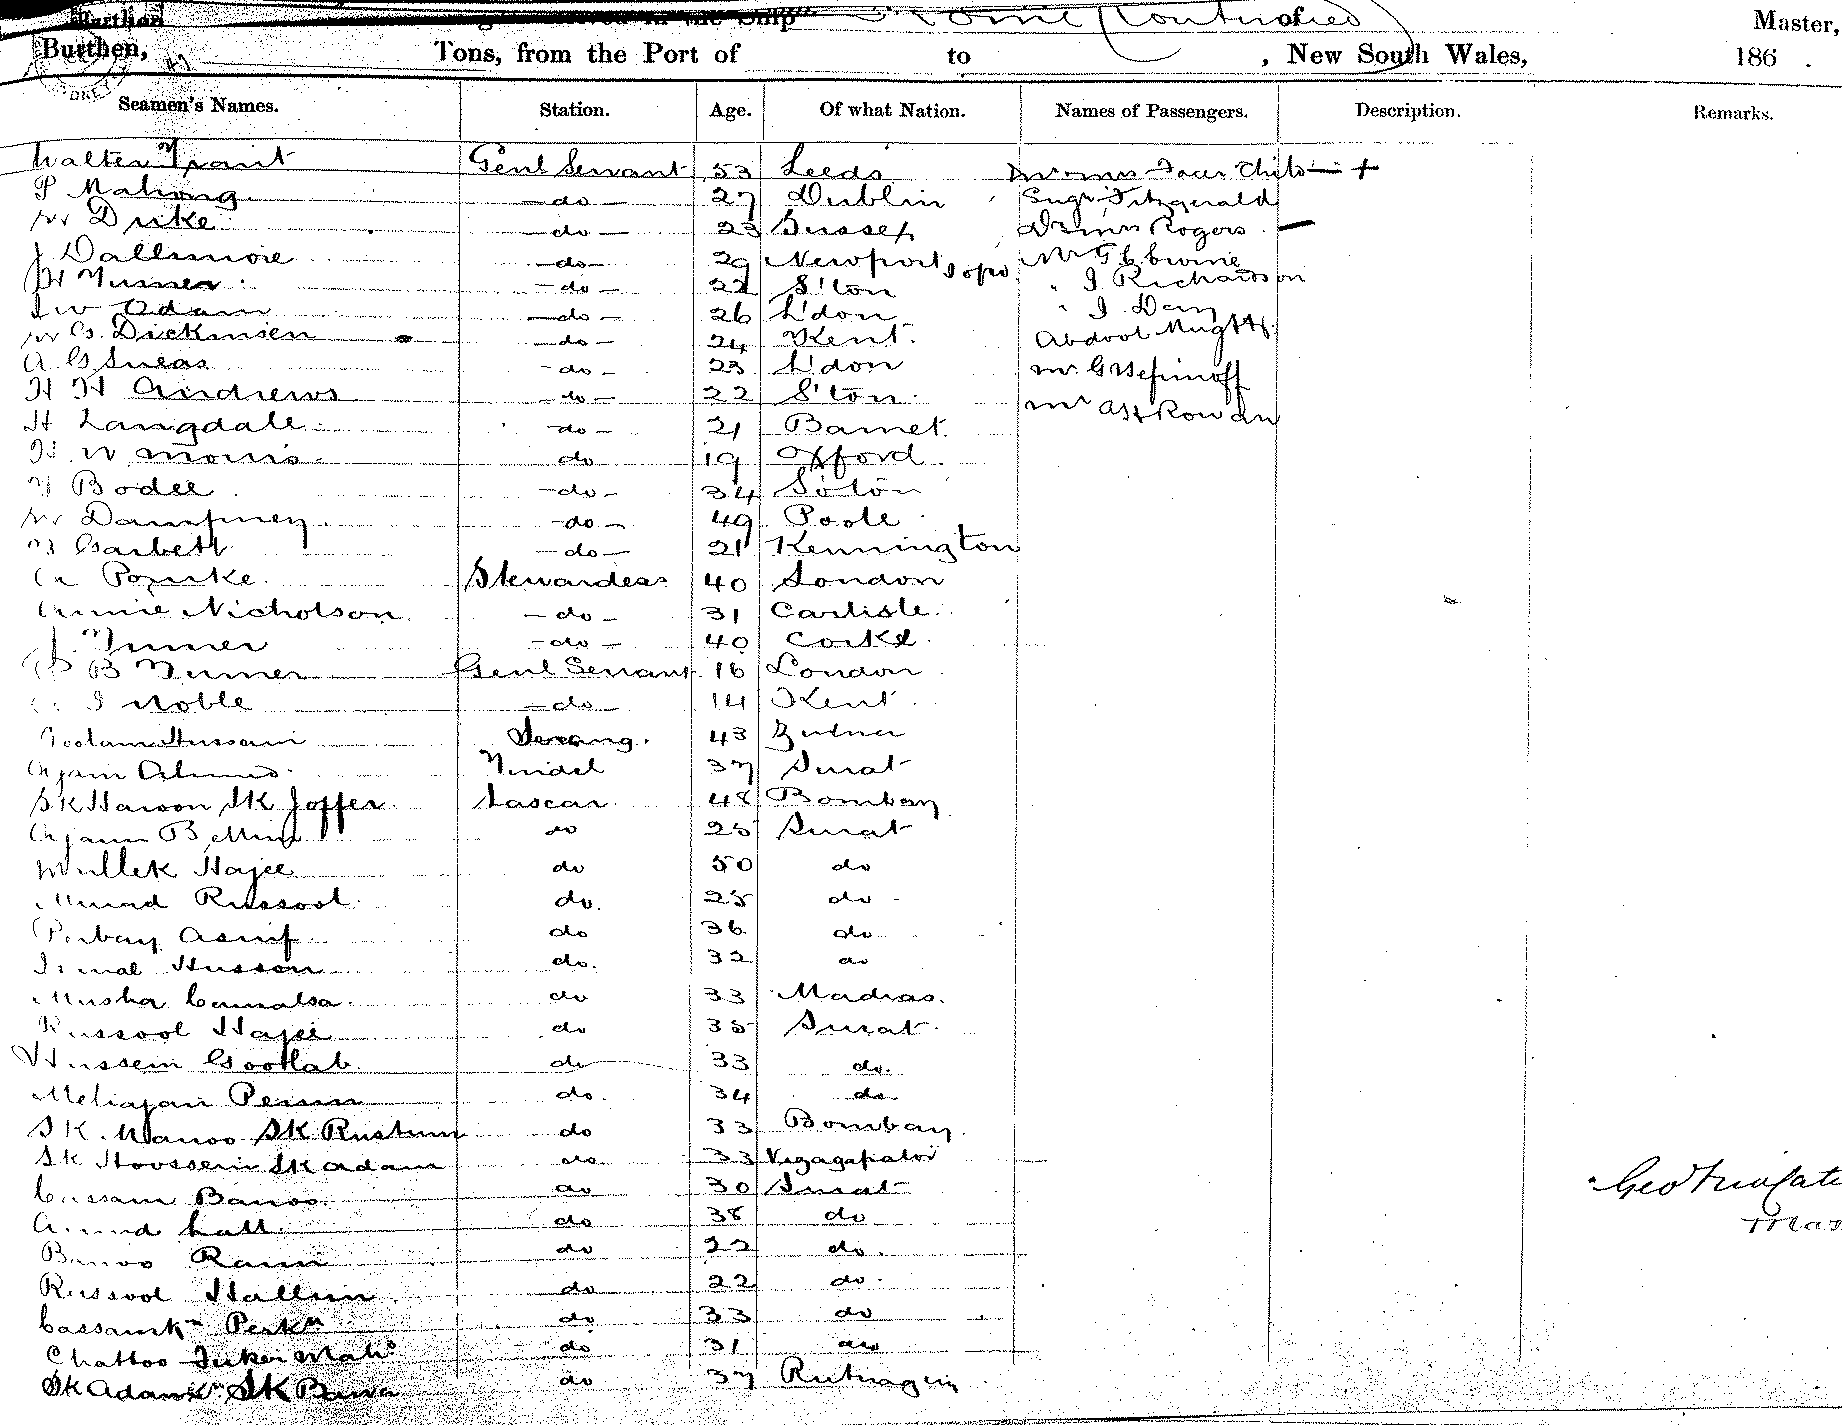 Ship Rome (Continued) of Master,
Burthen, Tons, from the Port of to , New South Wales, 186 .
Seamen's Names. Station. Age. Of what Nation. Names of Passengers. Description. Remarks.
Walter Trant Genl Servant 53 Leeds Mr & Mrs Four Chil
P Mahony do 27 Dublin Fitzgerald
W Duke do 23 Sussex Rogers
J Dallimore do 29 Newport Mr
H Turner do 22 S'ton " J Richardson
J W Adam do 26 L'don " J Day
W G. Dickinsen do 24 Kent Abdool
A G do 23 L'don Mr G
H H Andrews do 22 S'ton Mr A H Rowan
H Langdale do 21 Barnet
H. W Morris do 19 Oxford
Bodee do 34 Soton
W Dampney do 49 Poole
Garbett do 21 Kennington
Pourke Stewardess 40 London
Annie Nicholson do 31 Carlisle
J Turner do 40 Cork
B Turner Genl Servant 16 London
J Noble do 14 Kent
Goolam Hussain Serang 43
Ajam Ahmed Tindel 37 Surat
SK Haroon SK Joffer Lascar 48 Bombay
Ajam do 25 Surat
Mullek Hajee do 50 do
Murad Russool do 25 do
Asmf do 36 do
Ismal Husson do 32 do
Musha Camalsa do 33 Madras
Russool Hajee do 35 Surat
Hussein Goolab do 33 do
Meliajan Perun do 34 do
SK. Manoo SK Rustum do 33 Bombay
SK Hoossein SK Adam do 33 Vizagapator
Cassam Banoo do 30 Surat
Amud Lall do 38 do
Banoo Ram do 22 do
Russool Hallim do 22 do
Cassam do 33 do
Chattoo do 31 do
SK Adam SK Bawa do 37
Geo
Mas